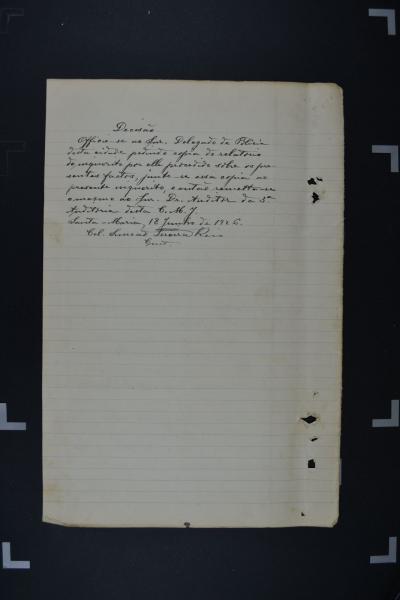 Decisão
Officie-se ao Snr. Delegado de Policia
desta cidade pedindo copia do relatorio
do inquerito por elle procedido sobre os pre-
sentes factos, junte-se essa copia ao
presente inquerito, e então remetta-se
o mesmo ao Snr. Dr. Auditor da 5ª
Auditoria desta C. M. J.
Santa-Maria, 18 Junho de 1926.
Cel.